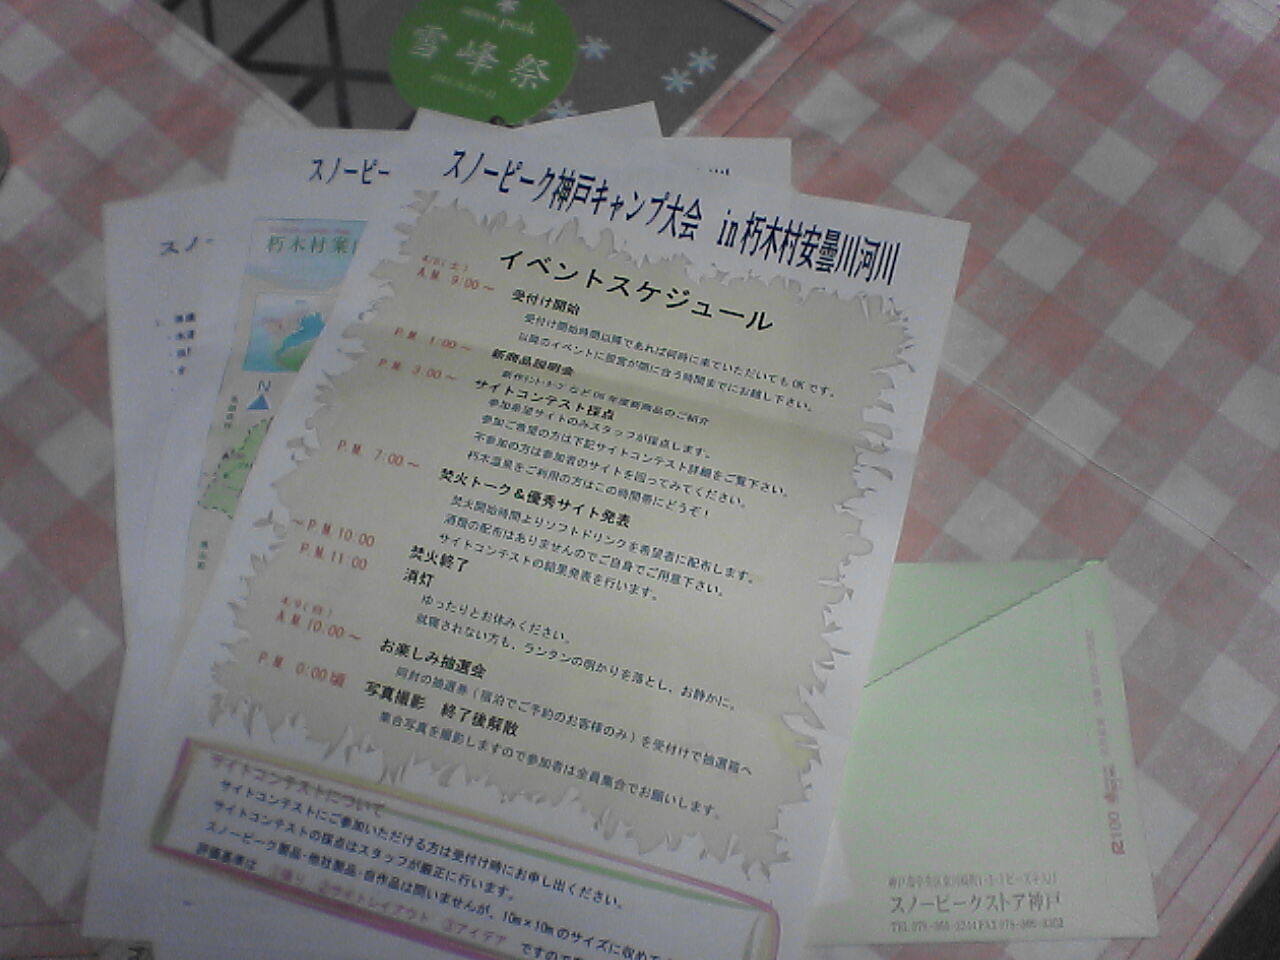 snow peak
雪峰祭
スノーピー
スノーピーク神戸キャンプ大会 in 朽木村安曇川河川
朽木村案
N
イベントスケジュール
4/8(土)
A.M. 9:00～ 受付け開始
受付け開始時間以降であれば何時に来ていただいてもOKです。
以降のイベントに設営が間に合う時間までにお越し下さい。
P.M. 1:00～ 新商品説明会
など06年度新商品のご紹介
P.M. 3:00～ サイトコンテスト採点
参加希望サイトのみスタッフが採点します。
参加ご希望の方は下記サイトコンテスト詳細をご覧下さい。
不参加の方は参加者のサイトを回ってみてください。
朽木温泉をご利用の方はこの時間帯にどうぞ！
P.M. 7:00～ 焚火トーク＆優秀サイト発表
焚火開始時間よりソフトドリンクを希望者に配布します。
酒類の配布はありませんのでご自身でご用意下さい。
サイトコンテストの結果発表を行います。
～P.M.10:00 焚火終了
P.M.11:00 消灯
ゆったりとお休みください。
就寝されない方も、ランタンの明かりを落とし、お静かに。
4/9(日)
A.M.10:00～ お楽しみ抽選会
同封の抽選券（宿泊でご予約のお客様のみ）を受付けで抽選箱へ
P.M. 0:00頃 写真撮影 終了後解散
集合写真を撮影しますので参加者は全員集合でお願いします。
サイトコンテストについて
サイトコンテストにご参加いただける方は受付け時にお申し出ください。
サイトコンテストの採点はスタッフが厳正に行います。
スノーピーク製品・他社製品・自作品は問いませんが、10m×10mのサイズに収めて
評価基準は ②サイトレイアウト ③アイデア ですので
スノーピークストア神戸